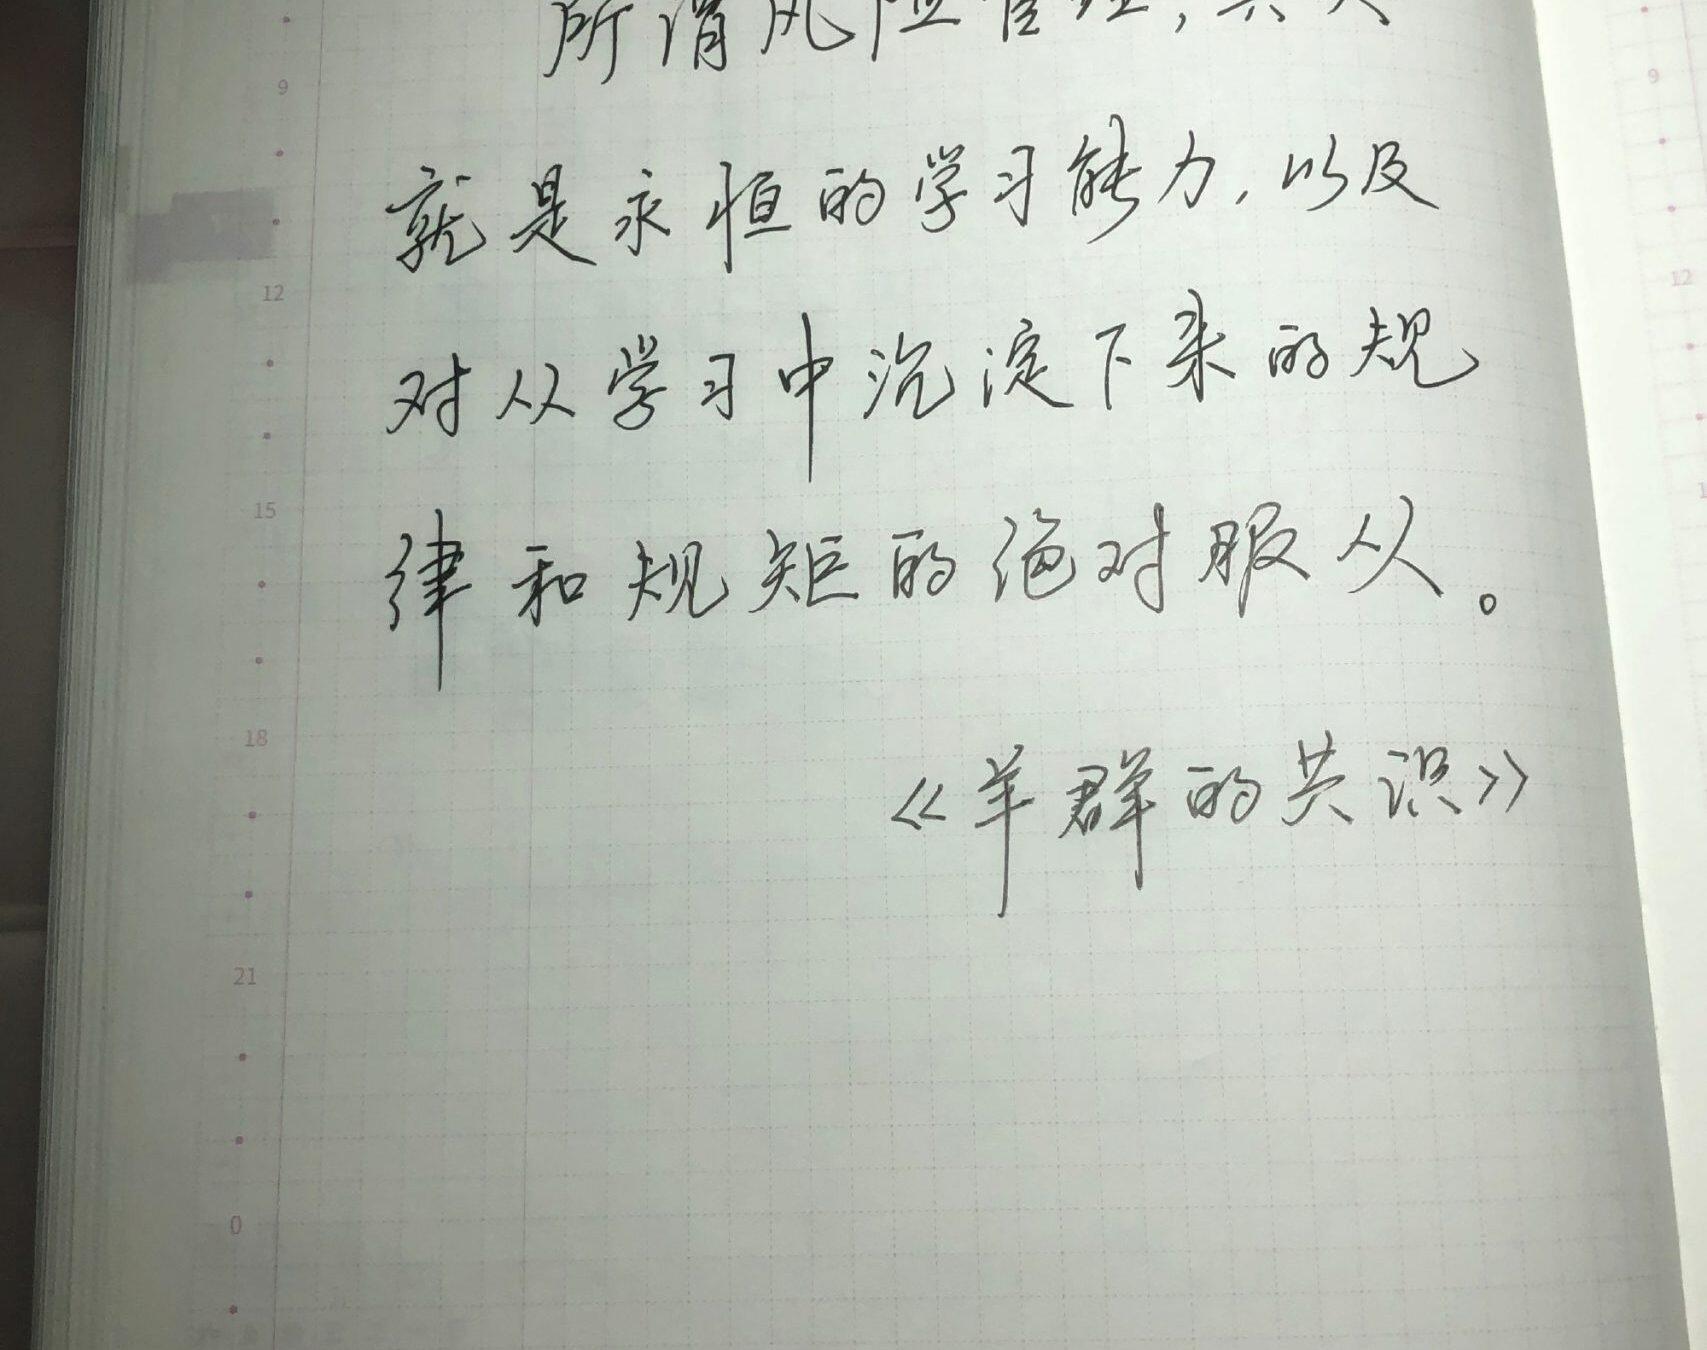 所谓风险管理，其实
就是永恒的学习能力，以及
对从学习中沉淀下来的规
律和规矩的绝对服从。
《羊群的共识》
9
12
15
18
21
0
9
12